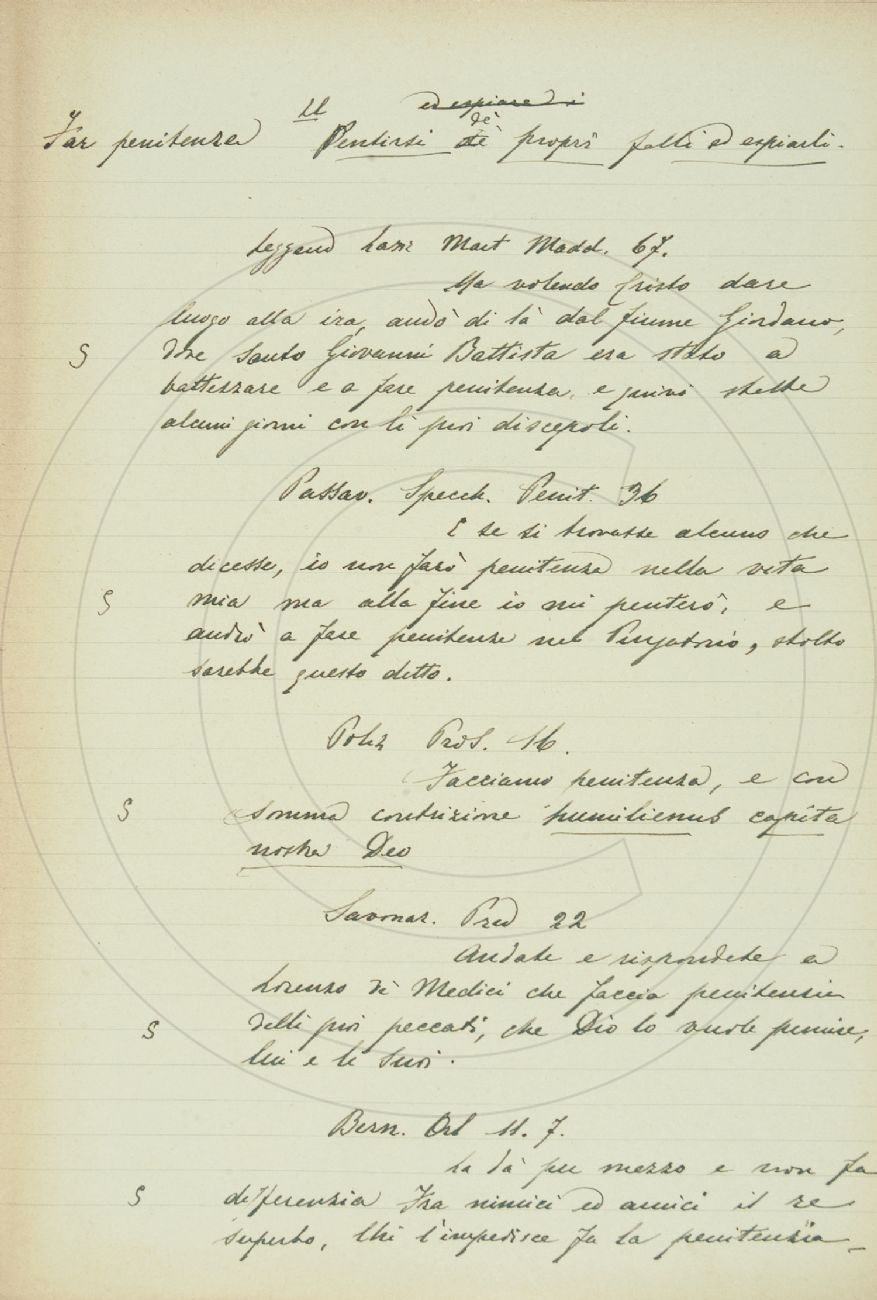 Il ed espiare i
Far penitenza Pentirsi de' de' proprî falli ed espiarli.
Leggend Lazz Mart Madd. 67.
Ma volendo Cristo dare
luogo alla ira, andò di là dal fiume Giordano,
S dove Santo Giovanni Battista era stato a
battezzare e a fare penitenza, e quivi stette
alcuni giorni con li suoi discepoli.
Passav. Specch. Penit. 36
E se si trovasse alcuno che
dicesse, io non farò penitenza nella vita
S mia ma alla fine io mi penterò, e
andrò a fare penitenza nel Purgatorio, stolto
sarebbe questo detto.
Poliz Pros. 16.
Facciamo penitenza, e con
S somma contrizione humiliemus capita
nostra Deo
Savonar. Pred 22
Andate e rispondete a
Lorenzo de' Medici che faccia penitenzia
S delli suoi peccati, che Dio lo vuole punire,
lui e li Suoi.
Bern. Orl 11. 7.
La dà pel mezzo e non fa
S differenzia Fra nimici ed amici il re
superbo, Chi l'impedisce fa la penitenzia